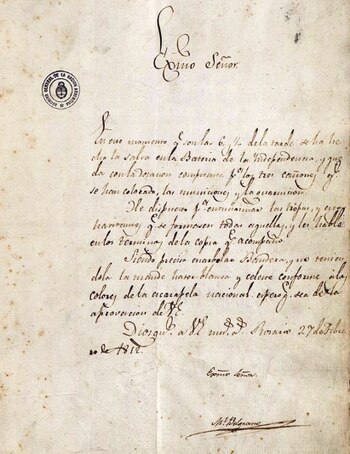 Exmo Señor.
En este momento q.e son las 6 ½ de la tarde se ha he
cho la salva en la Bateria de la Independencia, y que
da con la dotacion competente p.a los tres cañones q.e
se han colocado, las municiones y la guarnicion.
He dispuesto p.a entusiasmar las tropas, y estos
havitantes, q.e se formasen todas aquellas, y les hablé
en los terminos de la copia q.e acompaño.
Siendo preciso enarbolar Bandera, y no tenien
dola la mandé hacer blanca y celeste conforme á los
colores de la escarapela nacional, espero q.e sea de la
aprovacion de V.E.
Dios gue. a V.E. m.s a.s Rosario 27 de Febre
ro de 1812.
Exmo Señor.
M.l Belgrano